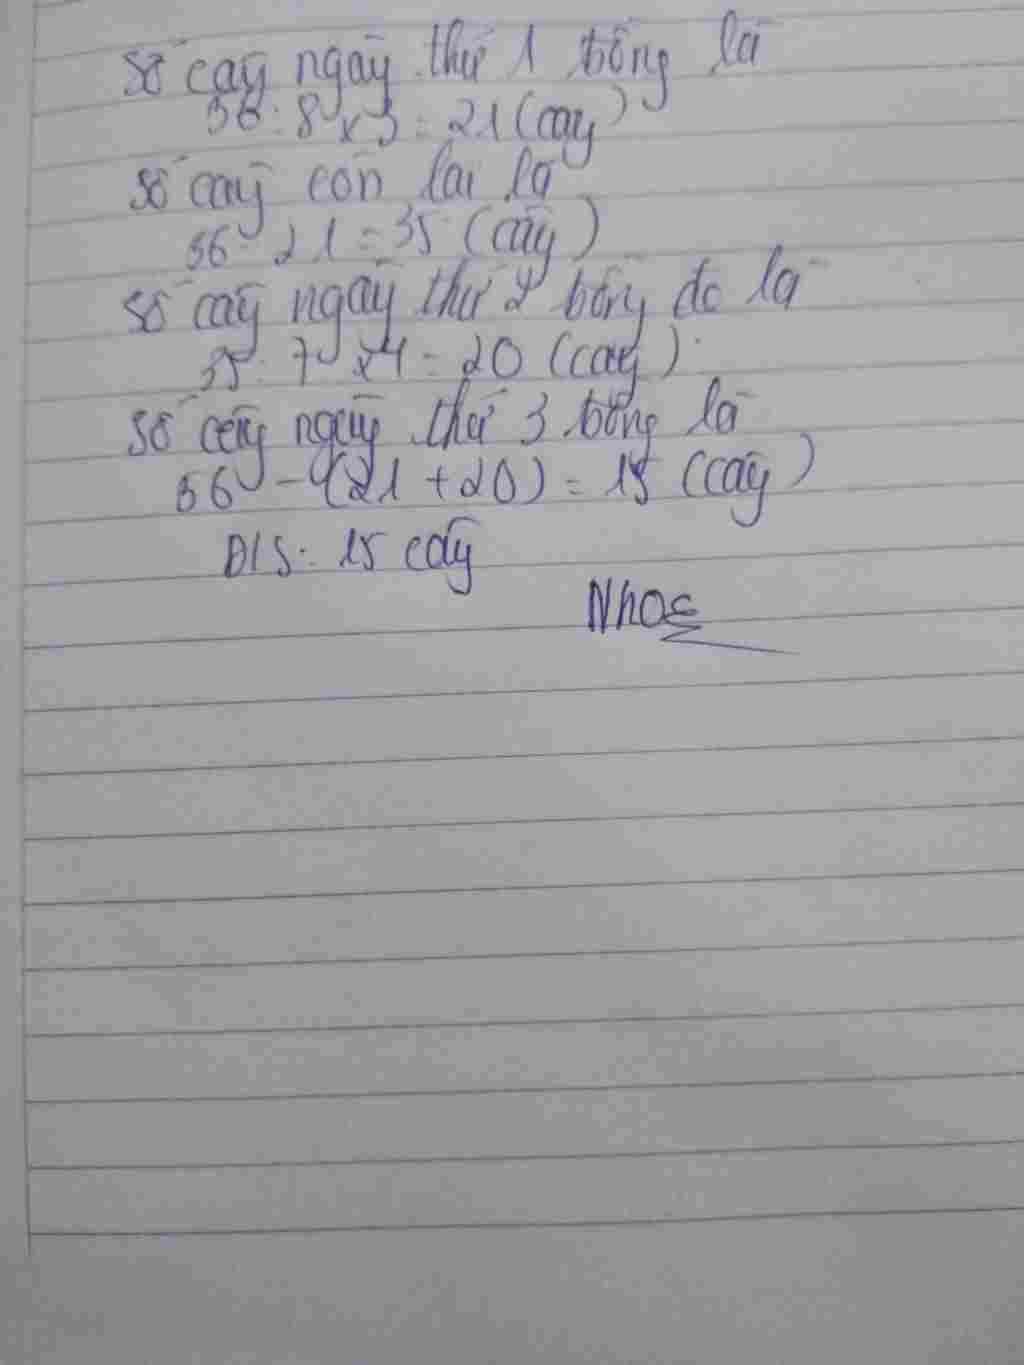 Số cây ngày thứ 1 trồng là
56 : 8 x 3 = 21 (cây)
Số cây còn lại là
56 - 21 = 35 (cây)
Số cây ngày thứ 2 trồng đc là
35 : 7 x 4 = 20 (cây)
Số cây ngày thứ 3 trồng là
56 - (21 + 20) = 15 (cây)
Đ/S : 15 cây
Nhoa